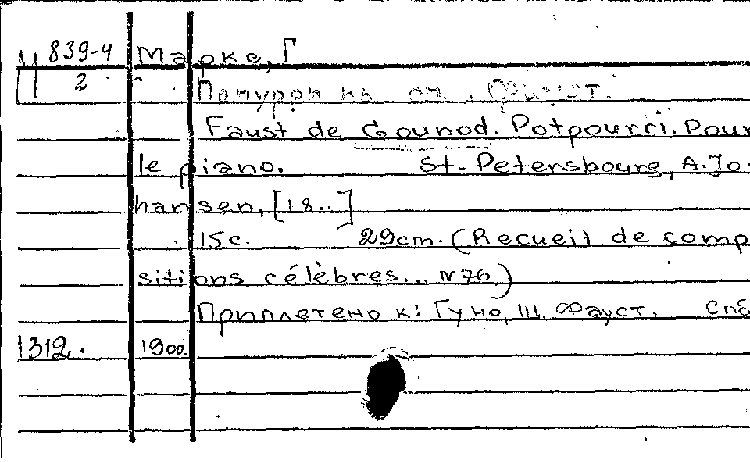 839-4 Марке, Г
2 Попурри из оп. Фауст.
Faust de Gounod. Potpourri. Pour
le piano. St-Petersbourg, A. Jo-
hansen, [18..]
15с. 29cm. (Recueil de comp
sitions célèbres... N76)
Приплетено к: Гуно, Ш. Фауст. Спб
1312. 1900.